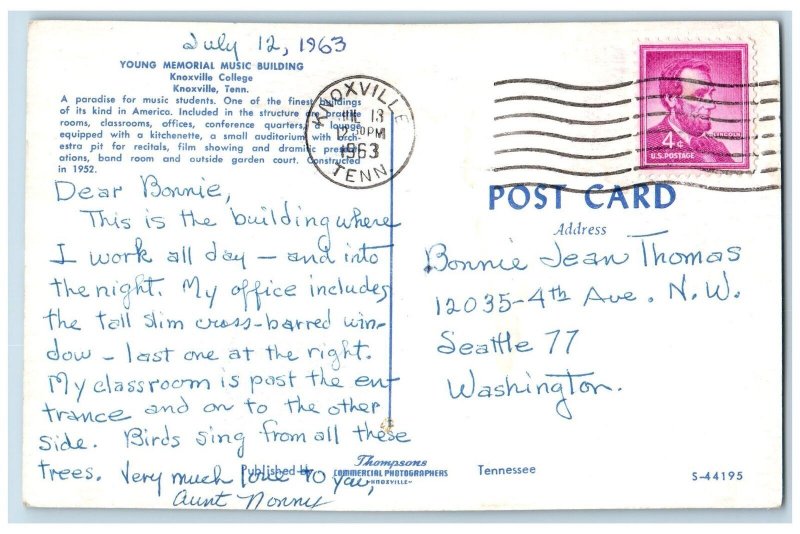 July 12, 1963
YOUNG MEMORIAL MUSIC BUILDING
Knoxville College
Knoxville, Tenn.
A paradise for music students. One of the finest buildings
of its kind in America. Included in the structure are practice
rooms, classrooms, offices, conference quarters, a lounge
equipped with a kitchenette, a small auditorium with orch-
estra pit for recitals, film showing and dramatic present-
ations, band room and outside garden court. Constructed
in 1952.
KNOXVILLE
JUL 13
12:30 PM
1963
TENN
4¢
U.S. POSTAGE
Dear Bonnie,
This is the building where
I work all day – and into
the night. My office includes
the tall slim cross-barred win-
dow – last one at the right.
My classroom is past the en-
trance and on to the other
side. Birds sing from all these
trees. Very much love to you,
Aunt Nonny
POST CARD
Address
Bonnie Jean Thomas
12035-4th Ave. N.W.
Seattle 77
Washington.
Published by
Thompsons
COMMERCIAL PHOTOGRAPHERS
KNOXVILLE
Tennessee
S-44195